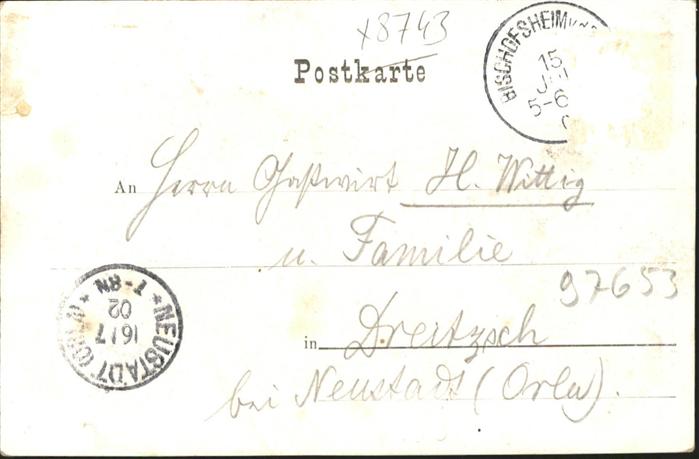 x8743
Postkarte
BISCHOFSHEIM
15
5-6
An Herrn Gastwirt H. Wittig
u. Familie
97653
in Dreitzsch
bei Neustadt (Orla).
NEUSTADT (ORLA)
16/7
02
7-8N